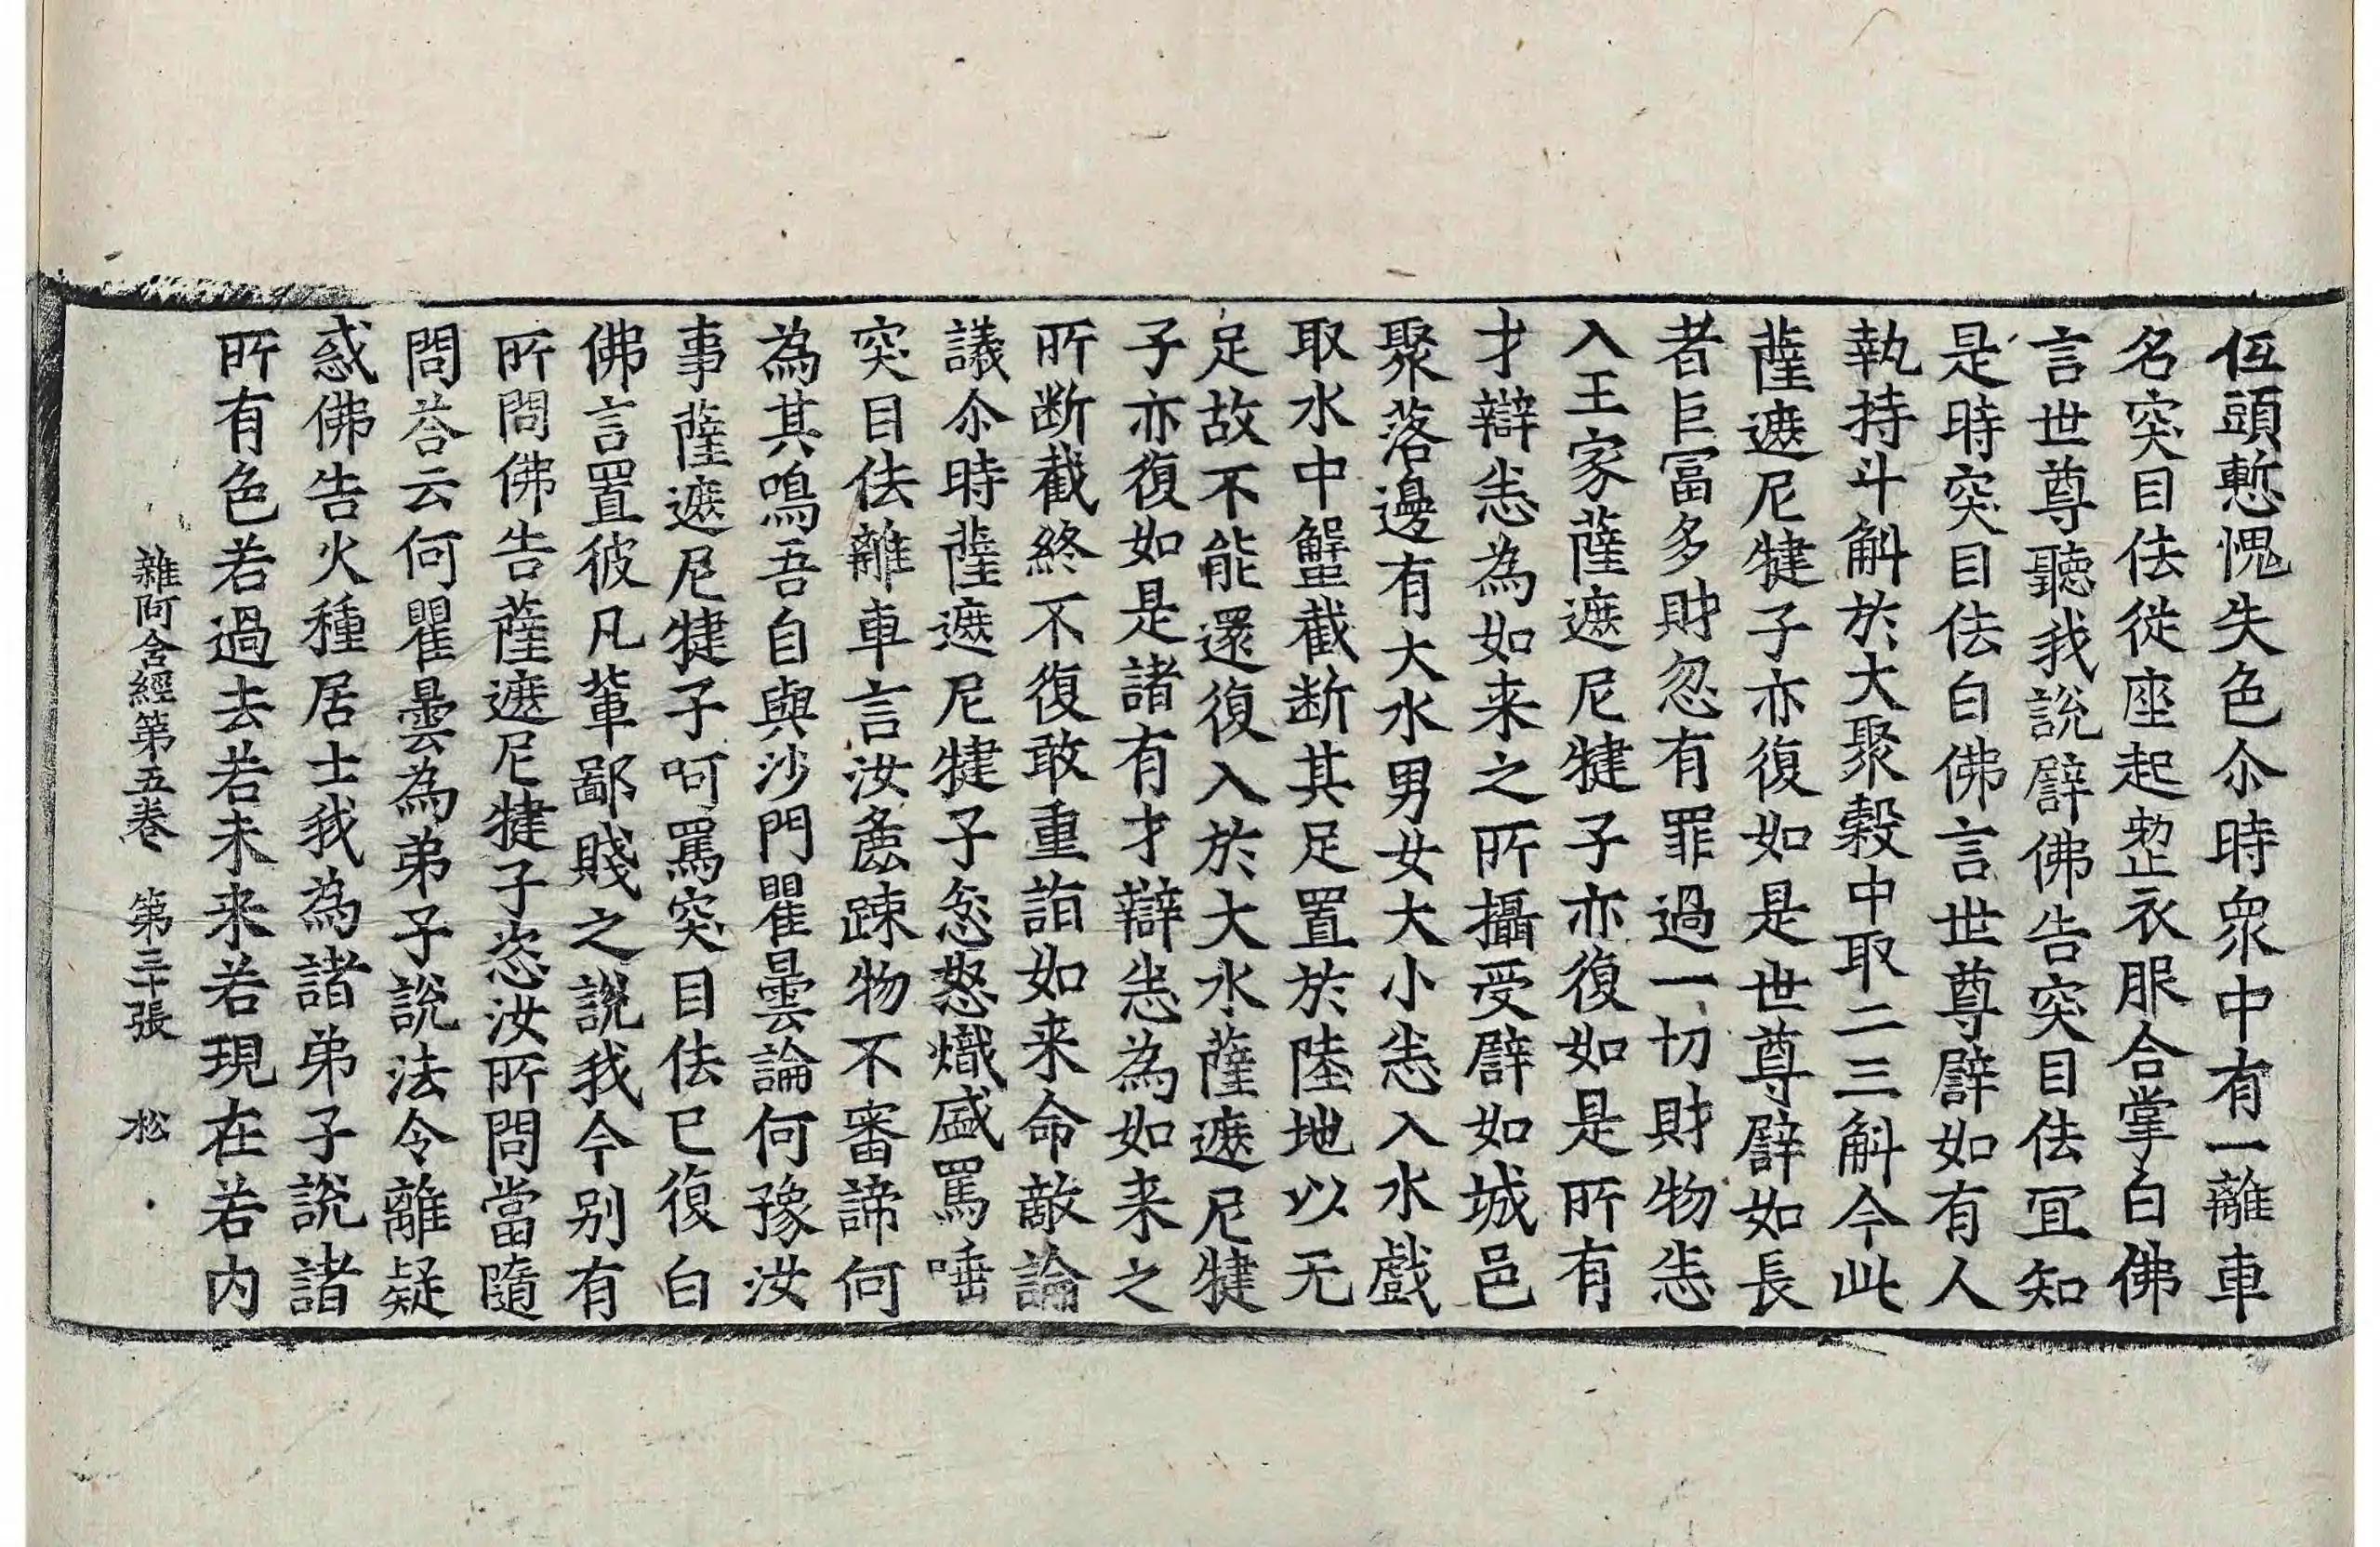 低頭慙愧失色尒時衆中有一離車
名突目佉從座起整衣服合掌白佛
言世尊聽我說譬佛告突目佉冝知
是時突目佉白佛言世尊譬如有人
執持斗斛於大聚穀中取二三斛今此
薩遮尼揵子亦復如是世尊譬如長
者巨冨多財忽有罪過一切財物悉
入王家薩遮尼揵子亦復如是所有
才辯悉為如来之所攝受譬如城邑
聚落邊有大水男女大小悉入水戲
取水中蟹截断其足置於陸地以无
足故不能還復入於大水薩遮尼揵
子亦復如是諸有才辯悉為如来之
所断截終不復敢重詣如来命敵論
議尒時薩遮尼揵子忿怒熾盛罵唾
突目佉離車言汝麁踈物不審諦何
為其鳴吾自與沙門瞿曇論何豫汝
事薩遮尼揵子呵罵突目佉已復白
佛言置彼凡輩鄙賤之說我今别有
所問佛告薩遮尼揵子恣汝所問當隨
問荅云何瞿曇為弟子說法令離疑
惑佛告火種居士我為諸弟子說諸
所有色若過去若未来若現在若内
雜阿含經第五巻 第三十張 松